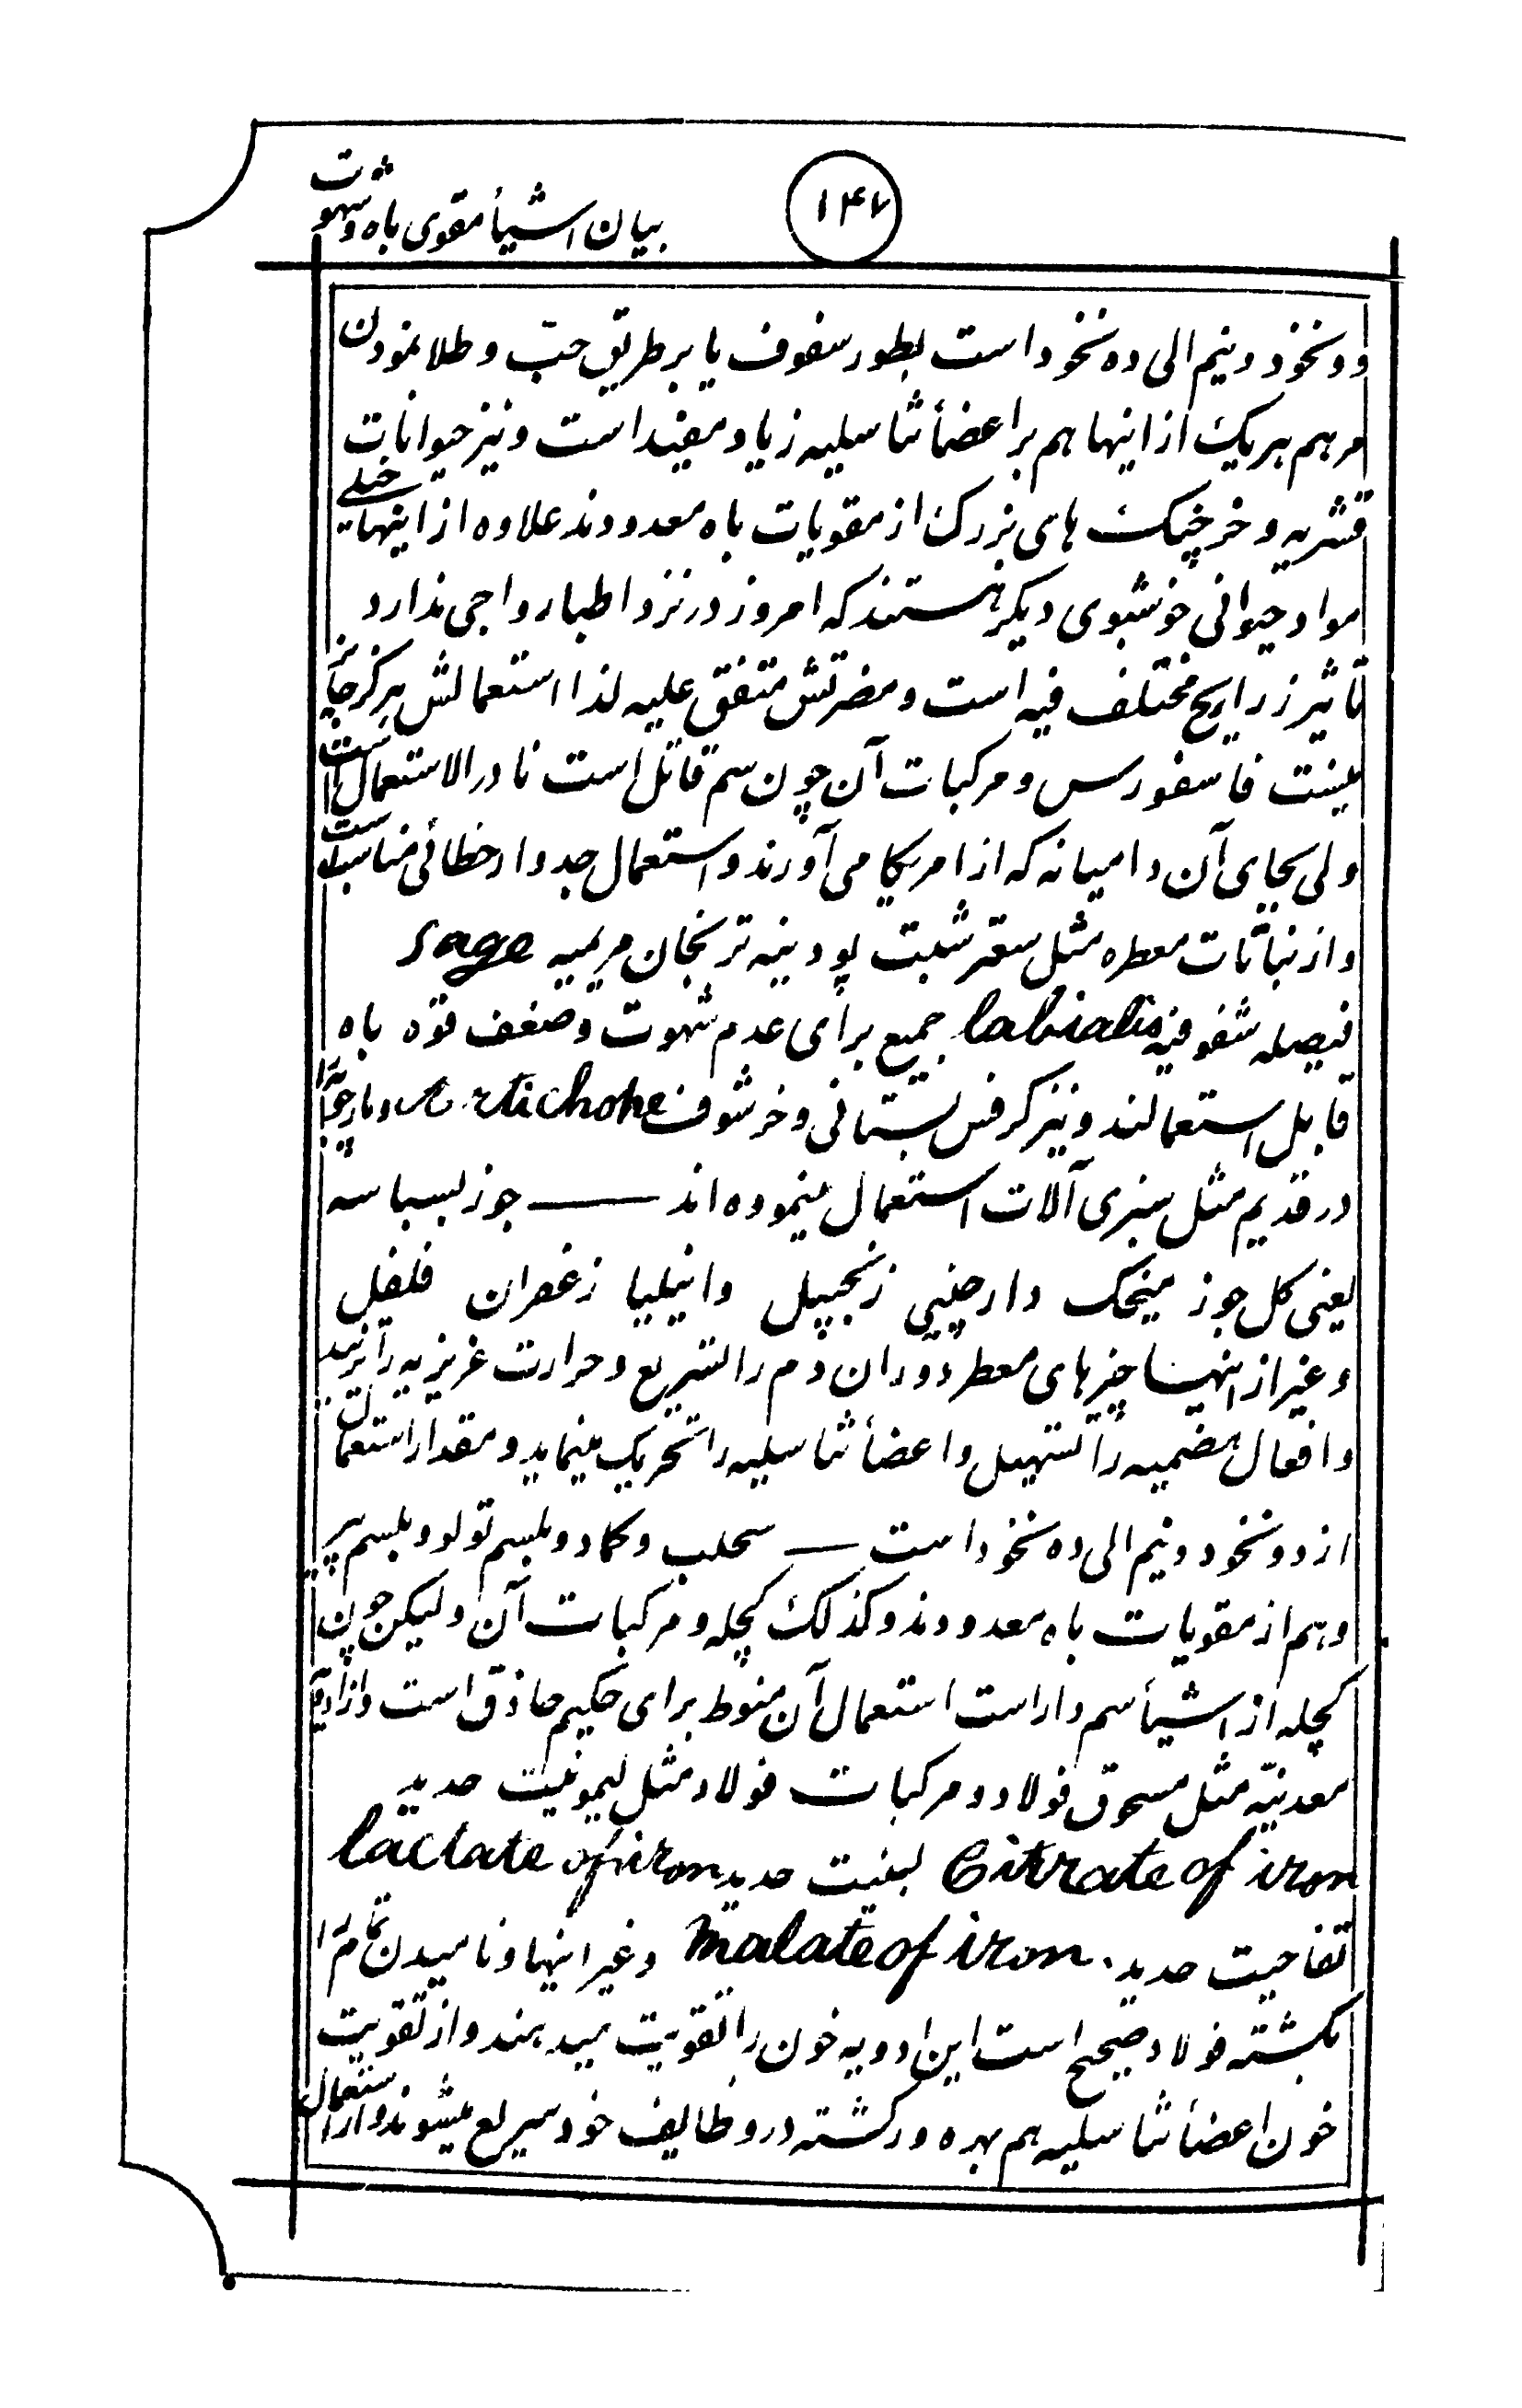 ۱۴۷
بیان اشیأ مقوی باه و شهوت
دو نخود و نیم الی ده نخود است بطور سفوف یا بر طریق حب و طلا نمودن
مرهم هریک از اینها هم بر اعضأ تناسلیه زیاد مفید است و نیز حیوانات
قشریه و خرچنگ های بزرگ از مقویات باه معدودند علاوه از اینها خیلی
مواد حیوانی خوشبوی دیگر هستند که امروز در نزد اطبا رواجی ندارد
تاثیر زراریح مختلف فیه است و مضرتش متفق علیه لذا استعمالش هرگز جائز
نیست فاسفورس و مرکبات آن چون سم قاتل است نادر الاستعمال است
ولی بجای آن دامیانه که از امریکا می آورند و استعمال جدوار خطائی مناسب است
و از نباتات معطره مثل سعتر شبت پودینه ترنجان مریمیه sage
فیصله شفوفیه labialis جمیع برای عدم شهوت و ضعف قوّه باه
قابل استعمالند و نیز کرفس بستانی و خرشوف artichoke و مارچوبه را
در قدیم مثل سبزی آلات استعمال مینموده اند — جوز بسباسه
یعنی گل جوز میخک دارچینی زنجبیل وانیلیا زعفران فلفل
و غیر از اینها چیزهای معطر دوران دم را تسریع و حرارت غریزیه را تزئید
و افعال هضمیه را تسهیل و اعضأ تناسلیه را تحریک مینماید و مقدار استعمال
از دو نخود و نیم الی ده نخود است — سحلب و کماد و بلسم تولو و بلسم پیرو
هم از مقویات باه معدودند و کذلک کچله و مرکبات آن ولیکن چون
کچله از اشیأ سم دار است استعمال آن منوط برای حکیم حاذق است و از ادویه
معدنیّه مثل مسحوق فولاد و مرکبات فولاد مثل لیمونیت حدید
Citrate of iron لبنیت حدید lactate of iron
تفاحیت حدید. malate of iron و غیر اینها و نامیدن تمام را
بکشته فولاد صحیح است این ادویه خون را تقویت میدهند و از تقویت
خون اعضأ تناسلیه هم بهره ور گشته در وظایف خود سریع میشوند و از استعمال